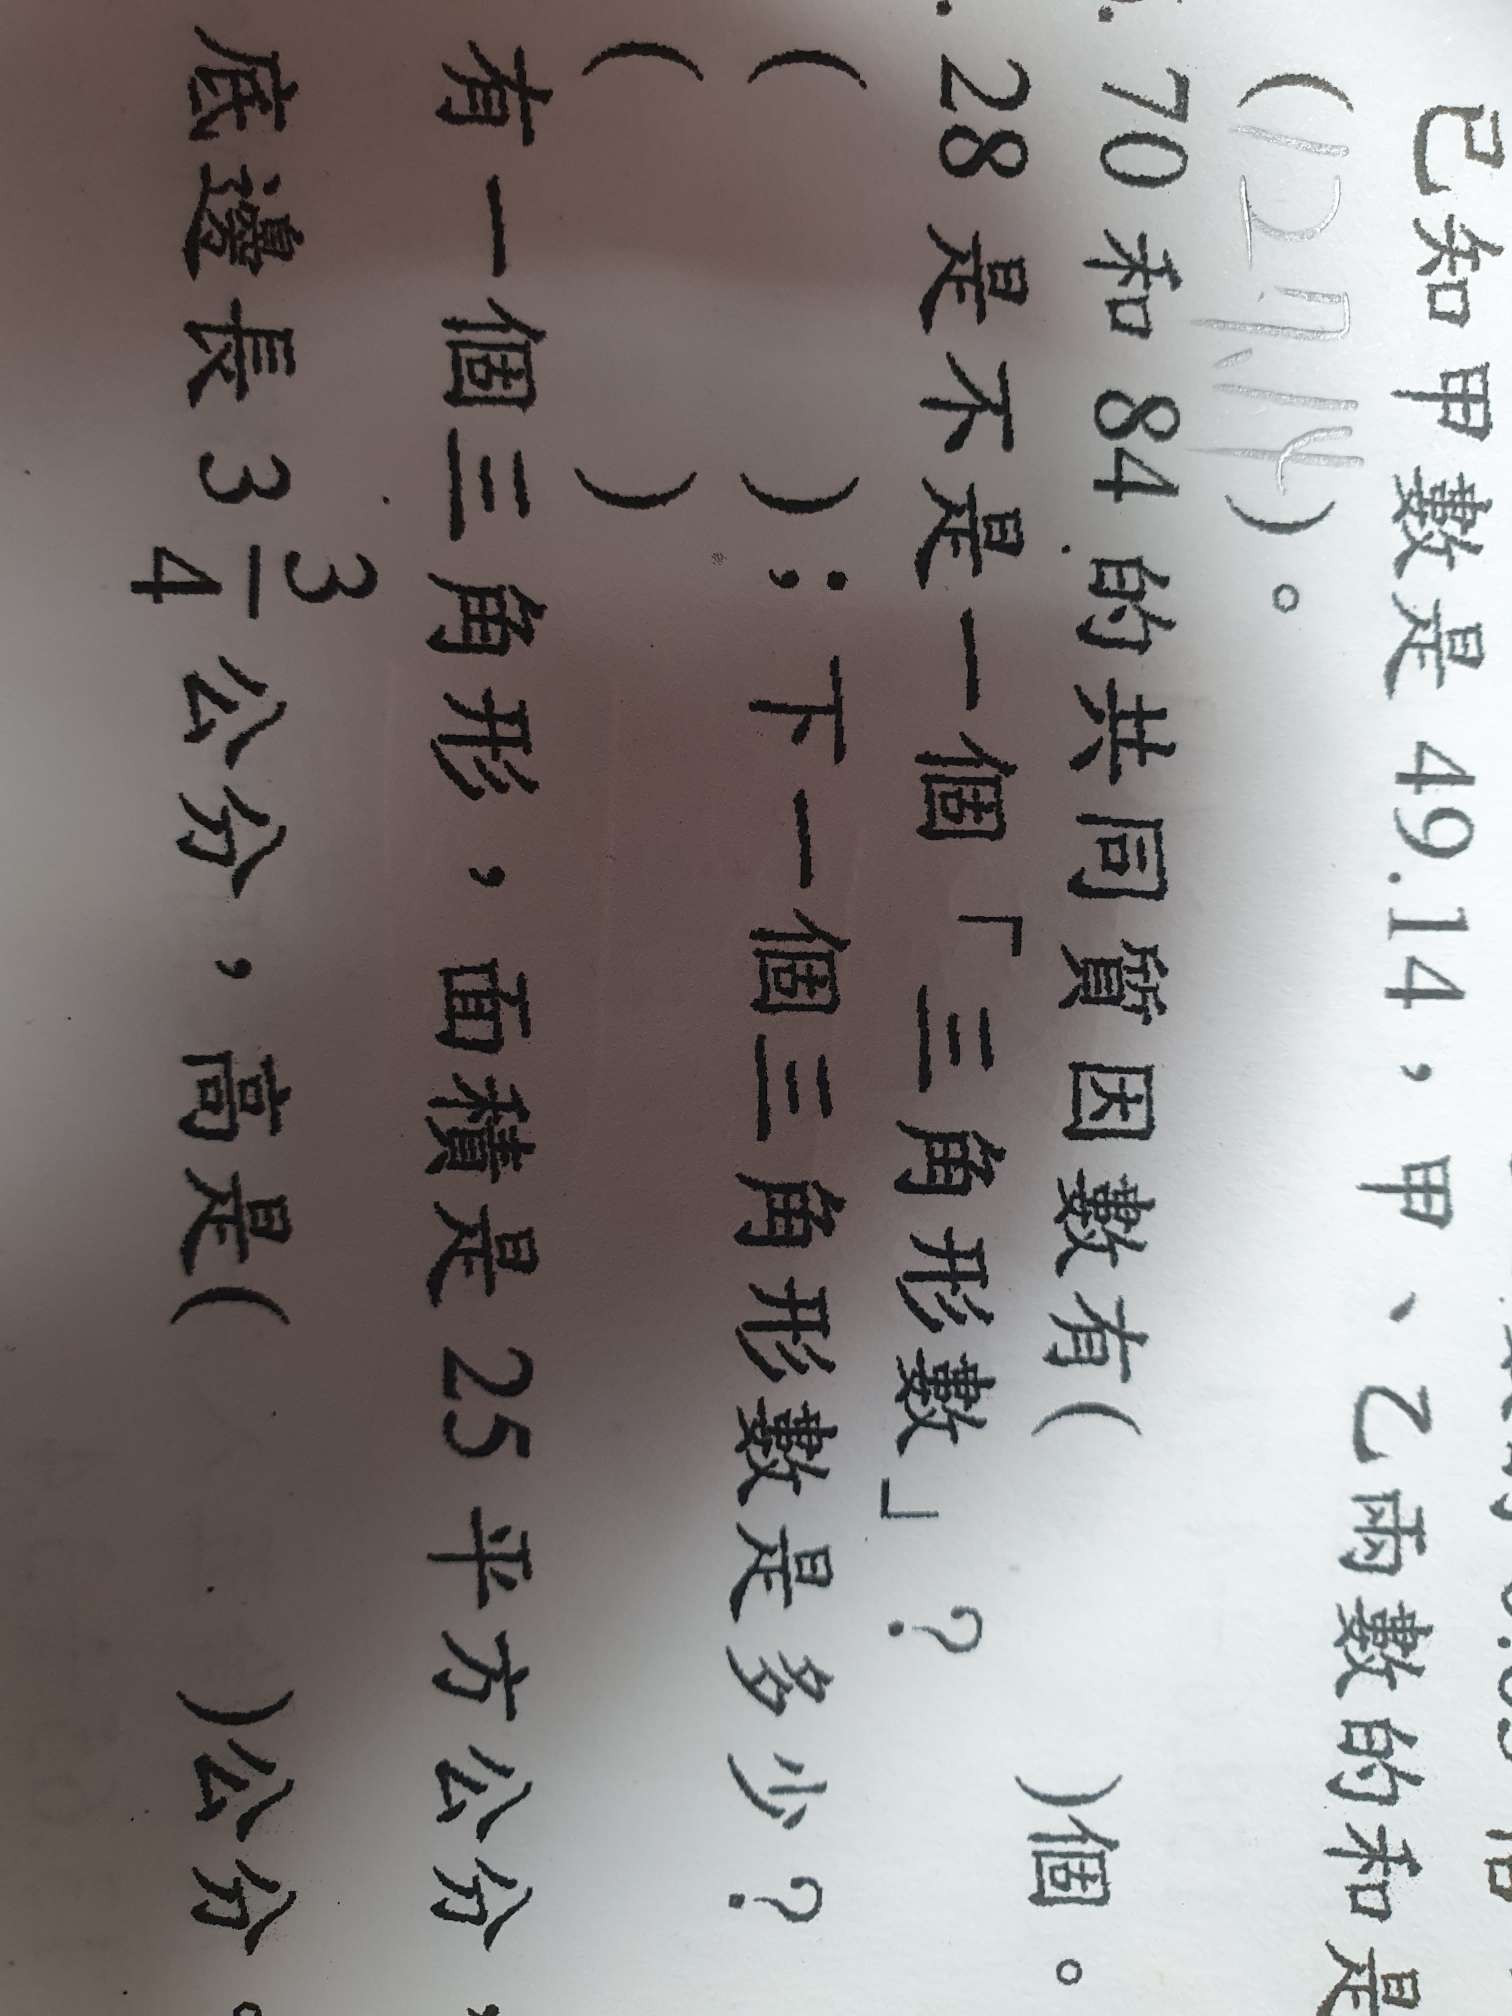 已知甲數是 49.14，甲、乙兩數的和是
(127.14)。
70 和 84 的共同質因數有(　　)個。
28 是不是一個「三角形數」？
(　　)；下一個三角形數是多少？
(　　)
有一個三角形，面積是 25 平方公分，
底邊長 3 3/4 公分，高是(　　)公分。